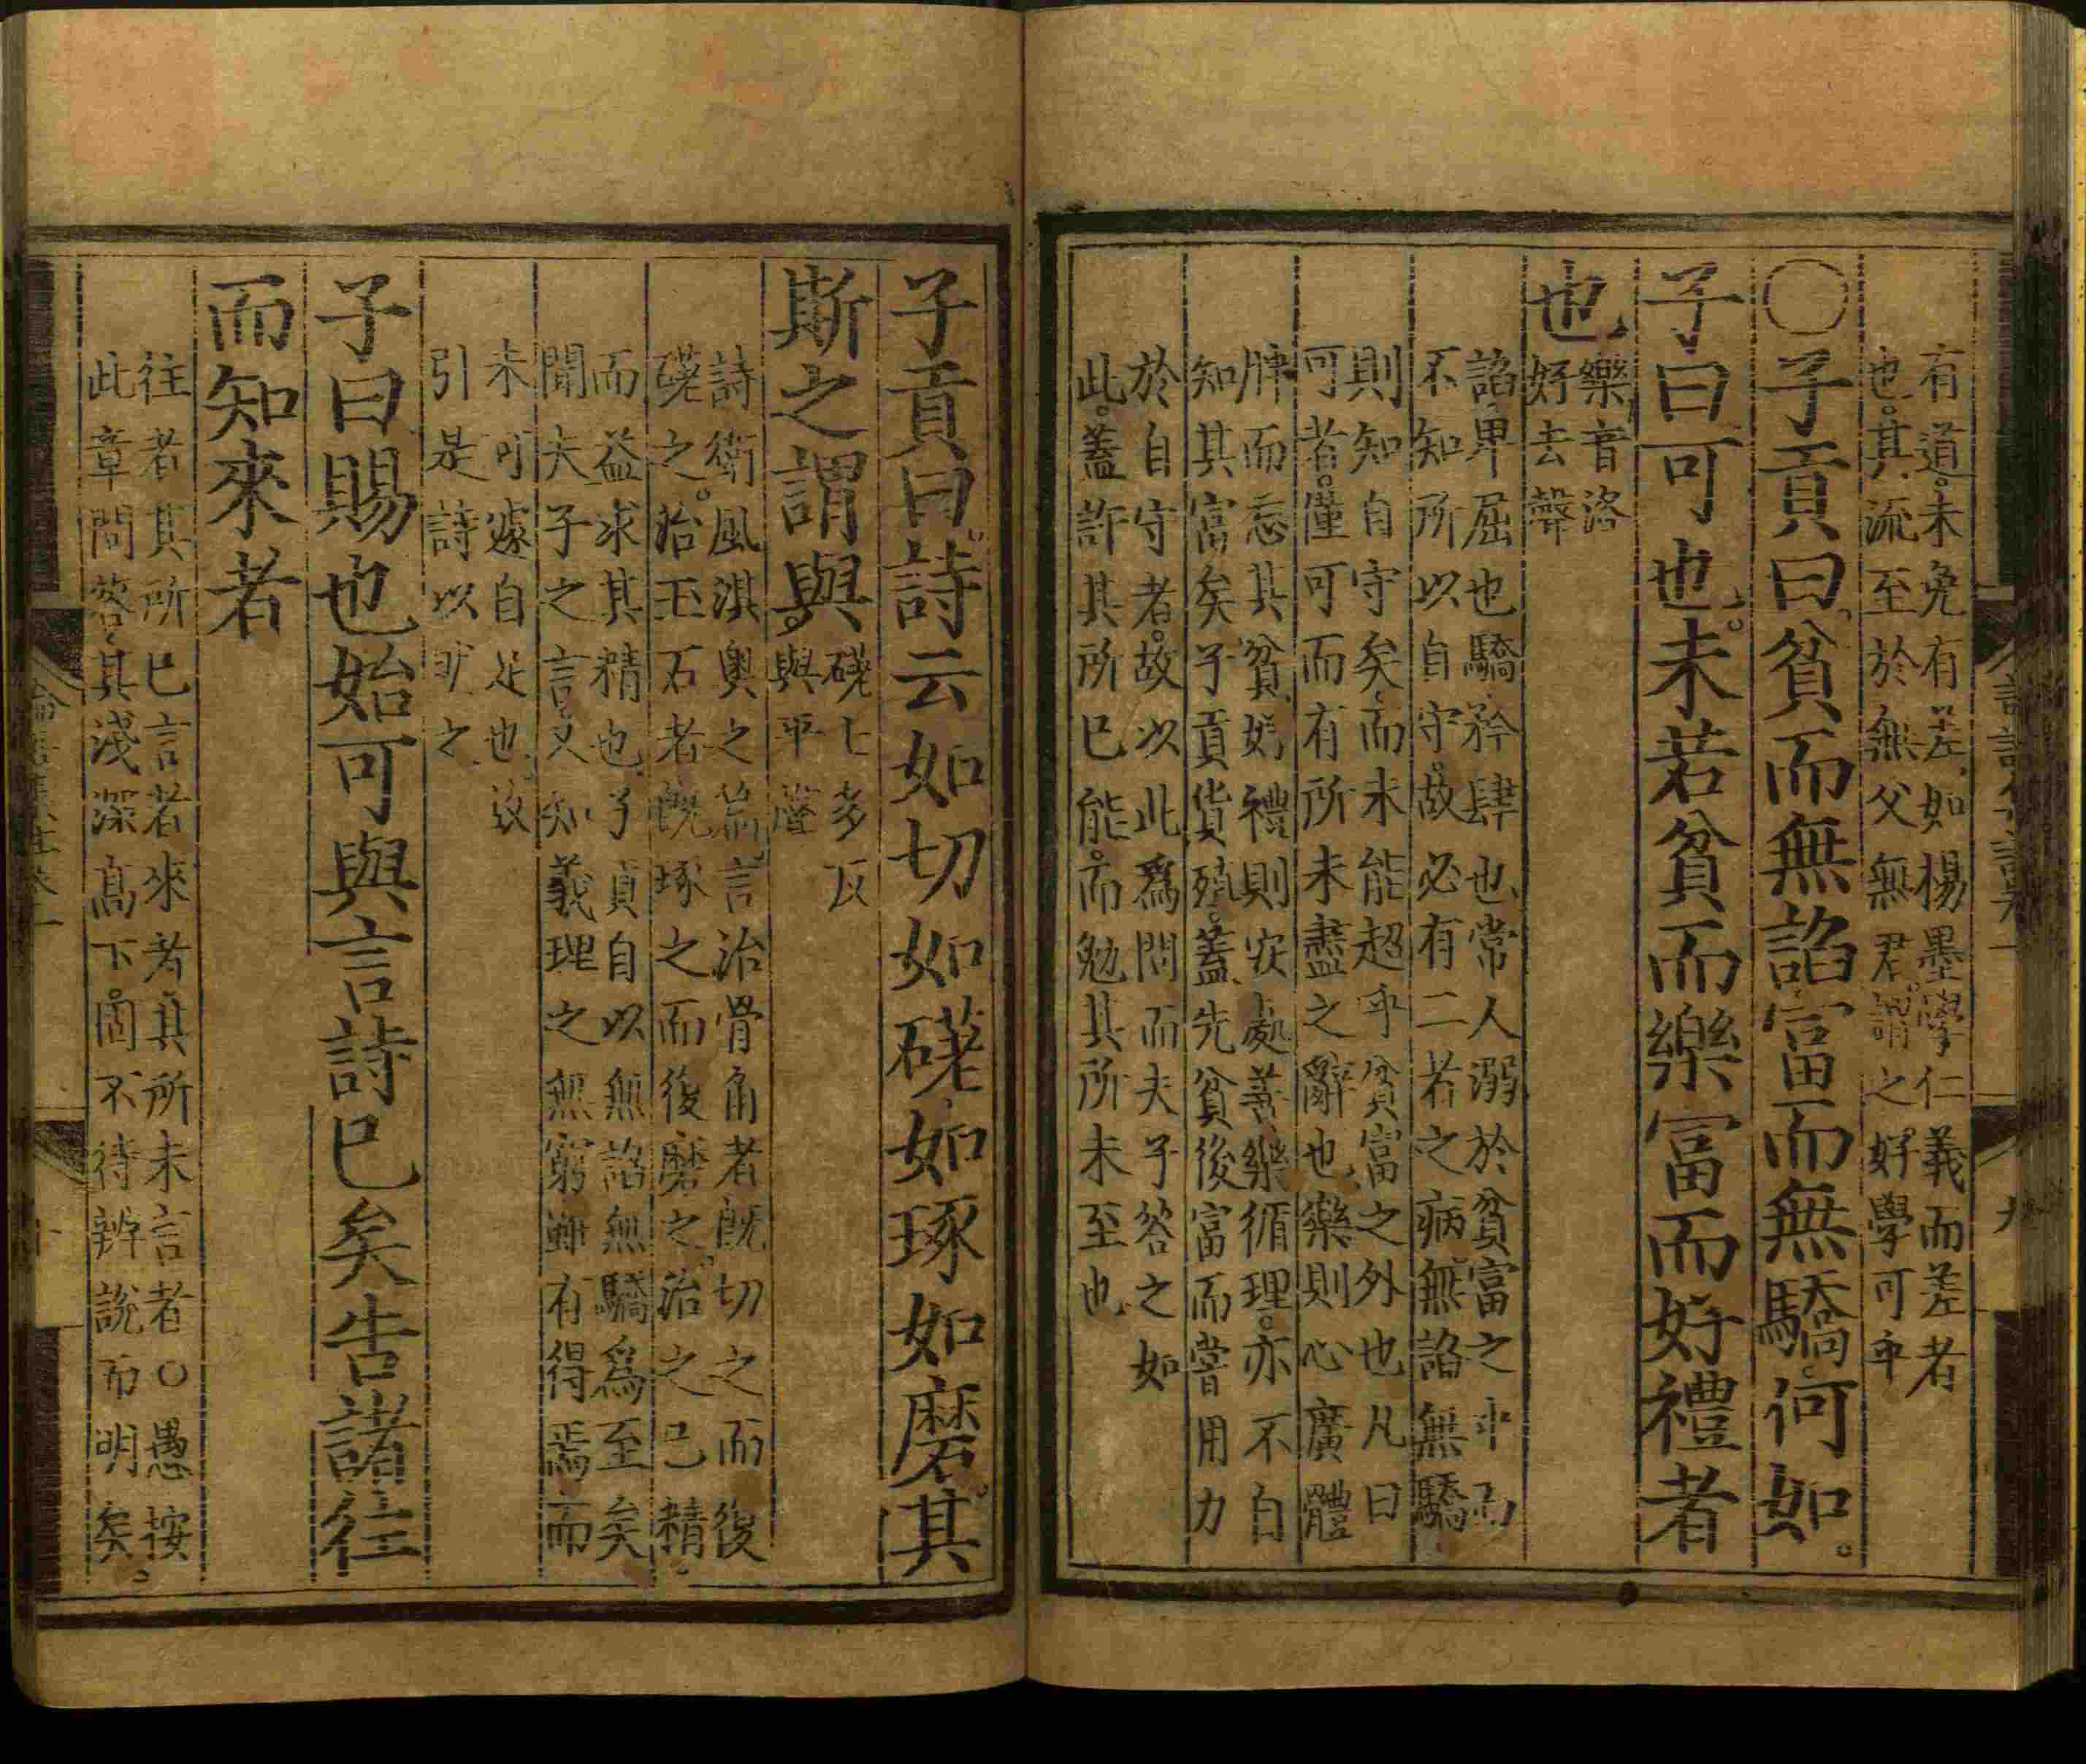 有道未免有差如楊墨學仁義而差者
也其流至於無父無君謂之好學可乎
○子貢曰貧而無諂富而無驕何如
子曰可也未若貧而樂富而好禮者
也
樂音洛
好去聲
諂卑屈也驕矜肆也常人溺於貧富之中而
不知所以自守故必有二者之病無諂無驕
則知自守矣而未能超乎貧富之外也凡曰
可者僅可而有所未盡之辭也樂則心廣體
胖而忘其貧好禮則安處善樂循理亦不自
知其富矣子貢貨殖蓋先貧後富而嘗用力
於自守者故以此為問而夫子答之如
此蓋許其所已能而勉其所未至也
九
子貢曰詩云如切如磋如琢如磨其
斯之謂與
磋七多反
與平聲
詩衛風淇奧之篇言治骨角者既切之而復
磋之治玉石者既琢之而後磨之治之已精
而益求其精也子貢自以無諂無驕為至矣
聞夫子之言又知義理之無窮雖有得焉而
未可遽自足也故
引是詩以明之
子曰賜也始可與言詩已矣告諸往
而知來者
往者其所已言者來者其所未言者○愚按
此章問答其淺深高下固不待辨說而明矣